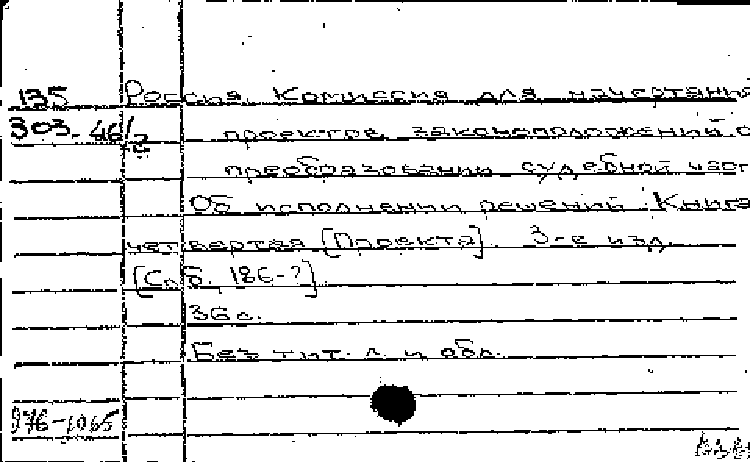 135 Россия. Комиссия для начертания
303-46/2 проектов законоположений о
преобразовании судебной част
Об исполнении решений. Книга
четвертая [Проекта]. 3-е изд.
[Спб. 186-?]
36 с.
Без тит. л. и обл.
976-1065